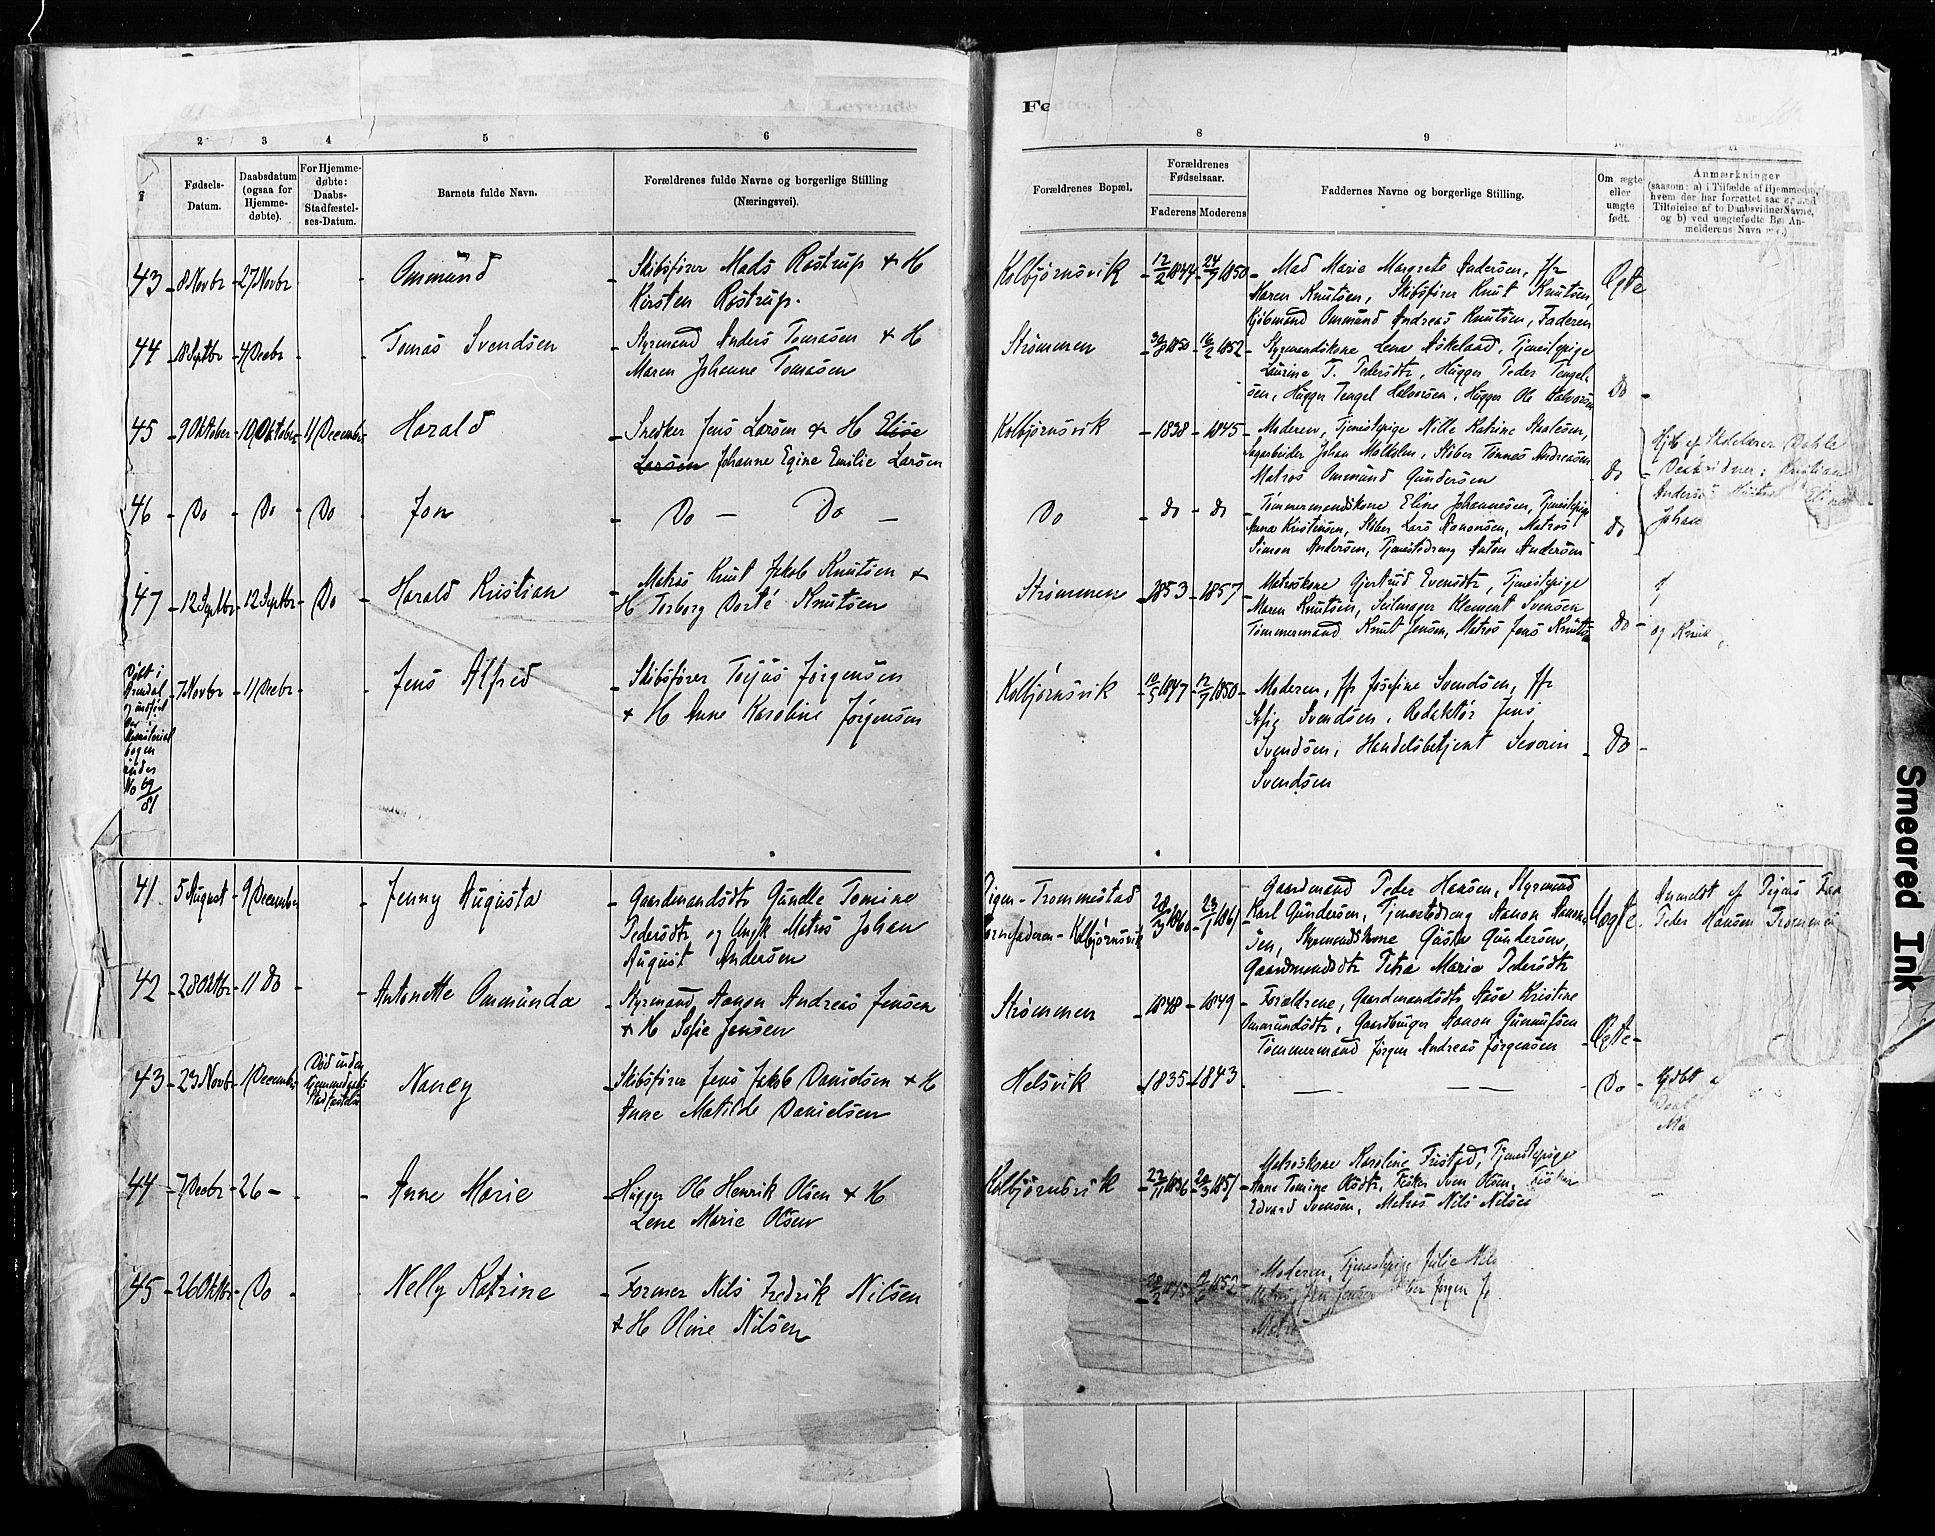 Fe
2 3 4 5 6
8 9
Fødsels-Datum.
Daabsdatum (ogsaa for Hjemmedøbte).
For Hjemmedøbte: Daabs-Stadfæstelses-Datum.
Barnets fulde Navn.
Forældrenes fulde Navne og borgerlige Stilling
(Næringsvei).
Forældrenes Bopæl.
Forældrenes Fødselsaar.
Faderens Moderens
Faddernes Navne og borgerlige Stilling.
Om ægte eller uægte født.
Anmærkninger
(saasom: a) i Tilfælde af Hjemmedaab
hvem der har forrettet
Tilføielse af to Daabsvidner Navne,
og b) ved uægtefødte
melderens Navn
43 8 Novbr 27 Novbr Ommünd
Skibsfører Mads Rostrup & H
Kirsten Rostrup.
Kolbjørnsvik 12/2 1844 24/9 1850
Mad Marie Margrete Andersen, Jfr
Maren Knutsen, Skibsfører Knut Knutsen,
Kjøbmand Ommünd Andreas Knutsen, Faderen
Ægte
44 18 Septbr 4 Decbr Tomas Svendsen
Styrmand Anders Tomasen & H
Maren Johanne Tomasen
Strømmen 1850 16/2 1852
Styrmandskone Lena Askeland, Tjenestepige
Laurine T. Pedersdtr, Hügger Peder Tengel-
sen, Hügger Tengel Halvorsen, Hügger Ole Halvorsen
Do
45 9 Oktober 10 Oktober 11 December Harald
Snedker Jens Larsen & H Elise
Larsen Johanne Egine Emilie Larsen
Kolbjørnsvik 1838 1845
Moderen, Tjenestepige Nille Katrine
Sagarbeider Johan, Støber Tønnes Andreasen
Matros Ommünd Gündersen
Do
46 Do Do Do Jon
Do Do
Do do do
Tømmermandskone Eline Johannesen, Tjenestepige
Anna Kristensen, Støber Lars Aanonsen, Matros
Simon Andersen, Tjenestedreng Anton Andersen
Do
47 12 Septbr 12 Septbr Do Harald Kristian
Matros Knut Jakob Knutsen &
H Torborg Dorté Knutsen
Strømmen 1853 1857
Matroskone Gjertrud Evensdtr, Tjenestepige
Maren Knutsen, Seilmager Klement Svensen
Tømmermand Knut Jensen, Matros Jens Knutsen
Do
og Knut
Døbt i
Arendal
og indført
der i
Ministerial
bogen
ünder
No 69/81
7 Novbr 11 Decbr Jens Alfred
Skibsfører Terjüs Jørgensen
& H Anne Karoline Jørgensen
Kolbjørnsvik 10/5 1847 12/7 1850
Moderen, Jfr Josefine Svendsen, Jfr
Svendsen, Redaktør Jens
Svendsen, Handelsbetjent Severin
Svendsen
Do
41 5 August 9 December Jenny Augusta
Gaardmandsdtr Gündte Tomine
Pedersdtr og Ungk Matros Johan
August Andersen
Pigen - Trommestad
Barnefaderen - Kolbjørnsvik
1860 23/1 1861
Gaardmand Peder Hansen, Styrmand
Karl Gündersen, Tjenestedreng Aanon Aanon-
sen, Styrmandskone Gusta Gündersen,
Gaardmandsdtr Petra Maria Pedersdtr
Uægte
Anmeldt af Pigens Fader
Peder Hansen
42 28 Oktbr 11 Do Antonette Ommünda
Styrmand Aanon Andreas Jensen
& H Sofie Jensen
Strømmen 1848 1849
Forældrene, Gaardmandsdtr Aase Kristine
Ommündsdtr, Gaardbruger Aanon Gunnufsen
Tømmermand Jørgen Andreas Jørgensen
Ægte
43 23 Novbr 1 December
Død inden
Nancy
Skibsfører Jens Jakob Danielsen & H
Anne Matilde Danielsen
Helsvik 1835 1843
Do
44 7 Decbr 26 Anne Marie
Hügger Ole Henrik Olsen & H
Lene Marie Olsen
Kolbjørnsvik 22/11 1856 1857
Matroskone Karoline Fristad, Tjenestepige
Anne Tomine Olsdtr, Fisker Sven Olsen, Fisker
Edvard Svensen, Matros Nils Nilsen
45 26 Oktbr Do Nelly Katrine
Former Nils Fredrik Nilsen
& H Oline Nilsen
1852
Moderen, Tjenestepige Julie
Jørgen
Matros
Smeared Ink